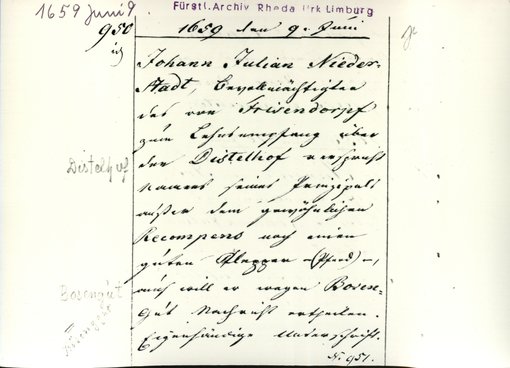 1659 Juni 9.
Fürstl. Archiv Rheda Urk Limburg
950
1659 den 9. Juni
Johann Julian Nieder=
stadt, Bevollmächtigter
des von Frisendorpf
zum Lehnsempfang über
den Distelhof verspricht
Namens seines Prinzipals
außer dem gewöhnlichen
Recompens noch einen
guten Klepper -(Pferd)-,
auch will er wegen Boven=
Gut Nachricht ertheilen.
Eigenhändige Unterschrift.
N. 951.
Distelhof